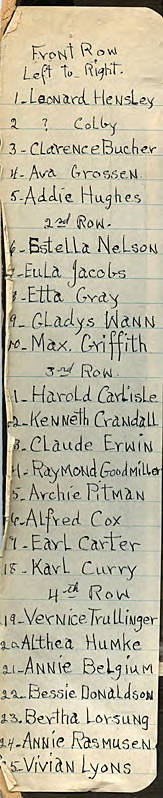 Front Row
Left to Right.
1-Leonard Hensley
2 ? Colby
3-Clarence Bucher
4-Ava Grossen
5-Addie Hughes
2nd Row.
6-Estella Nelson
7-Eula Jacobs
8-Etta Gray
9-Gladys Wann
10-Max. Griffith
3rd Row.
1-Harold Carlisle
2-Kenneth Crandall
3-Claude Erwin
4-Raymond Goodmiller
5-Archie Pitman
6-Alfred Cox
7-Earl Carter
18-Karl Curry
4th Row
19-Vernice Trullinger
20 Althea Humke
21-Annie Belgium
22-Bessie Donaldson
23-Bertha Lorsung
24-Annie Rasmusen
25-Vivian Lyons